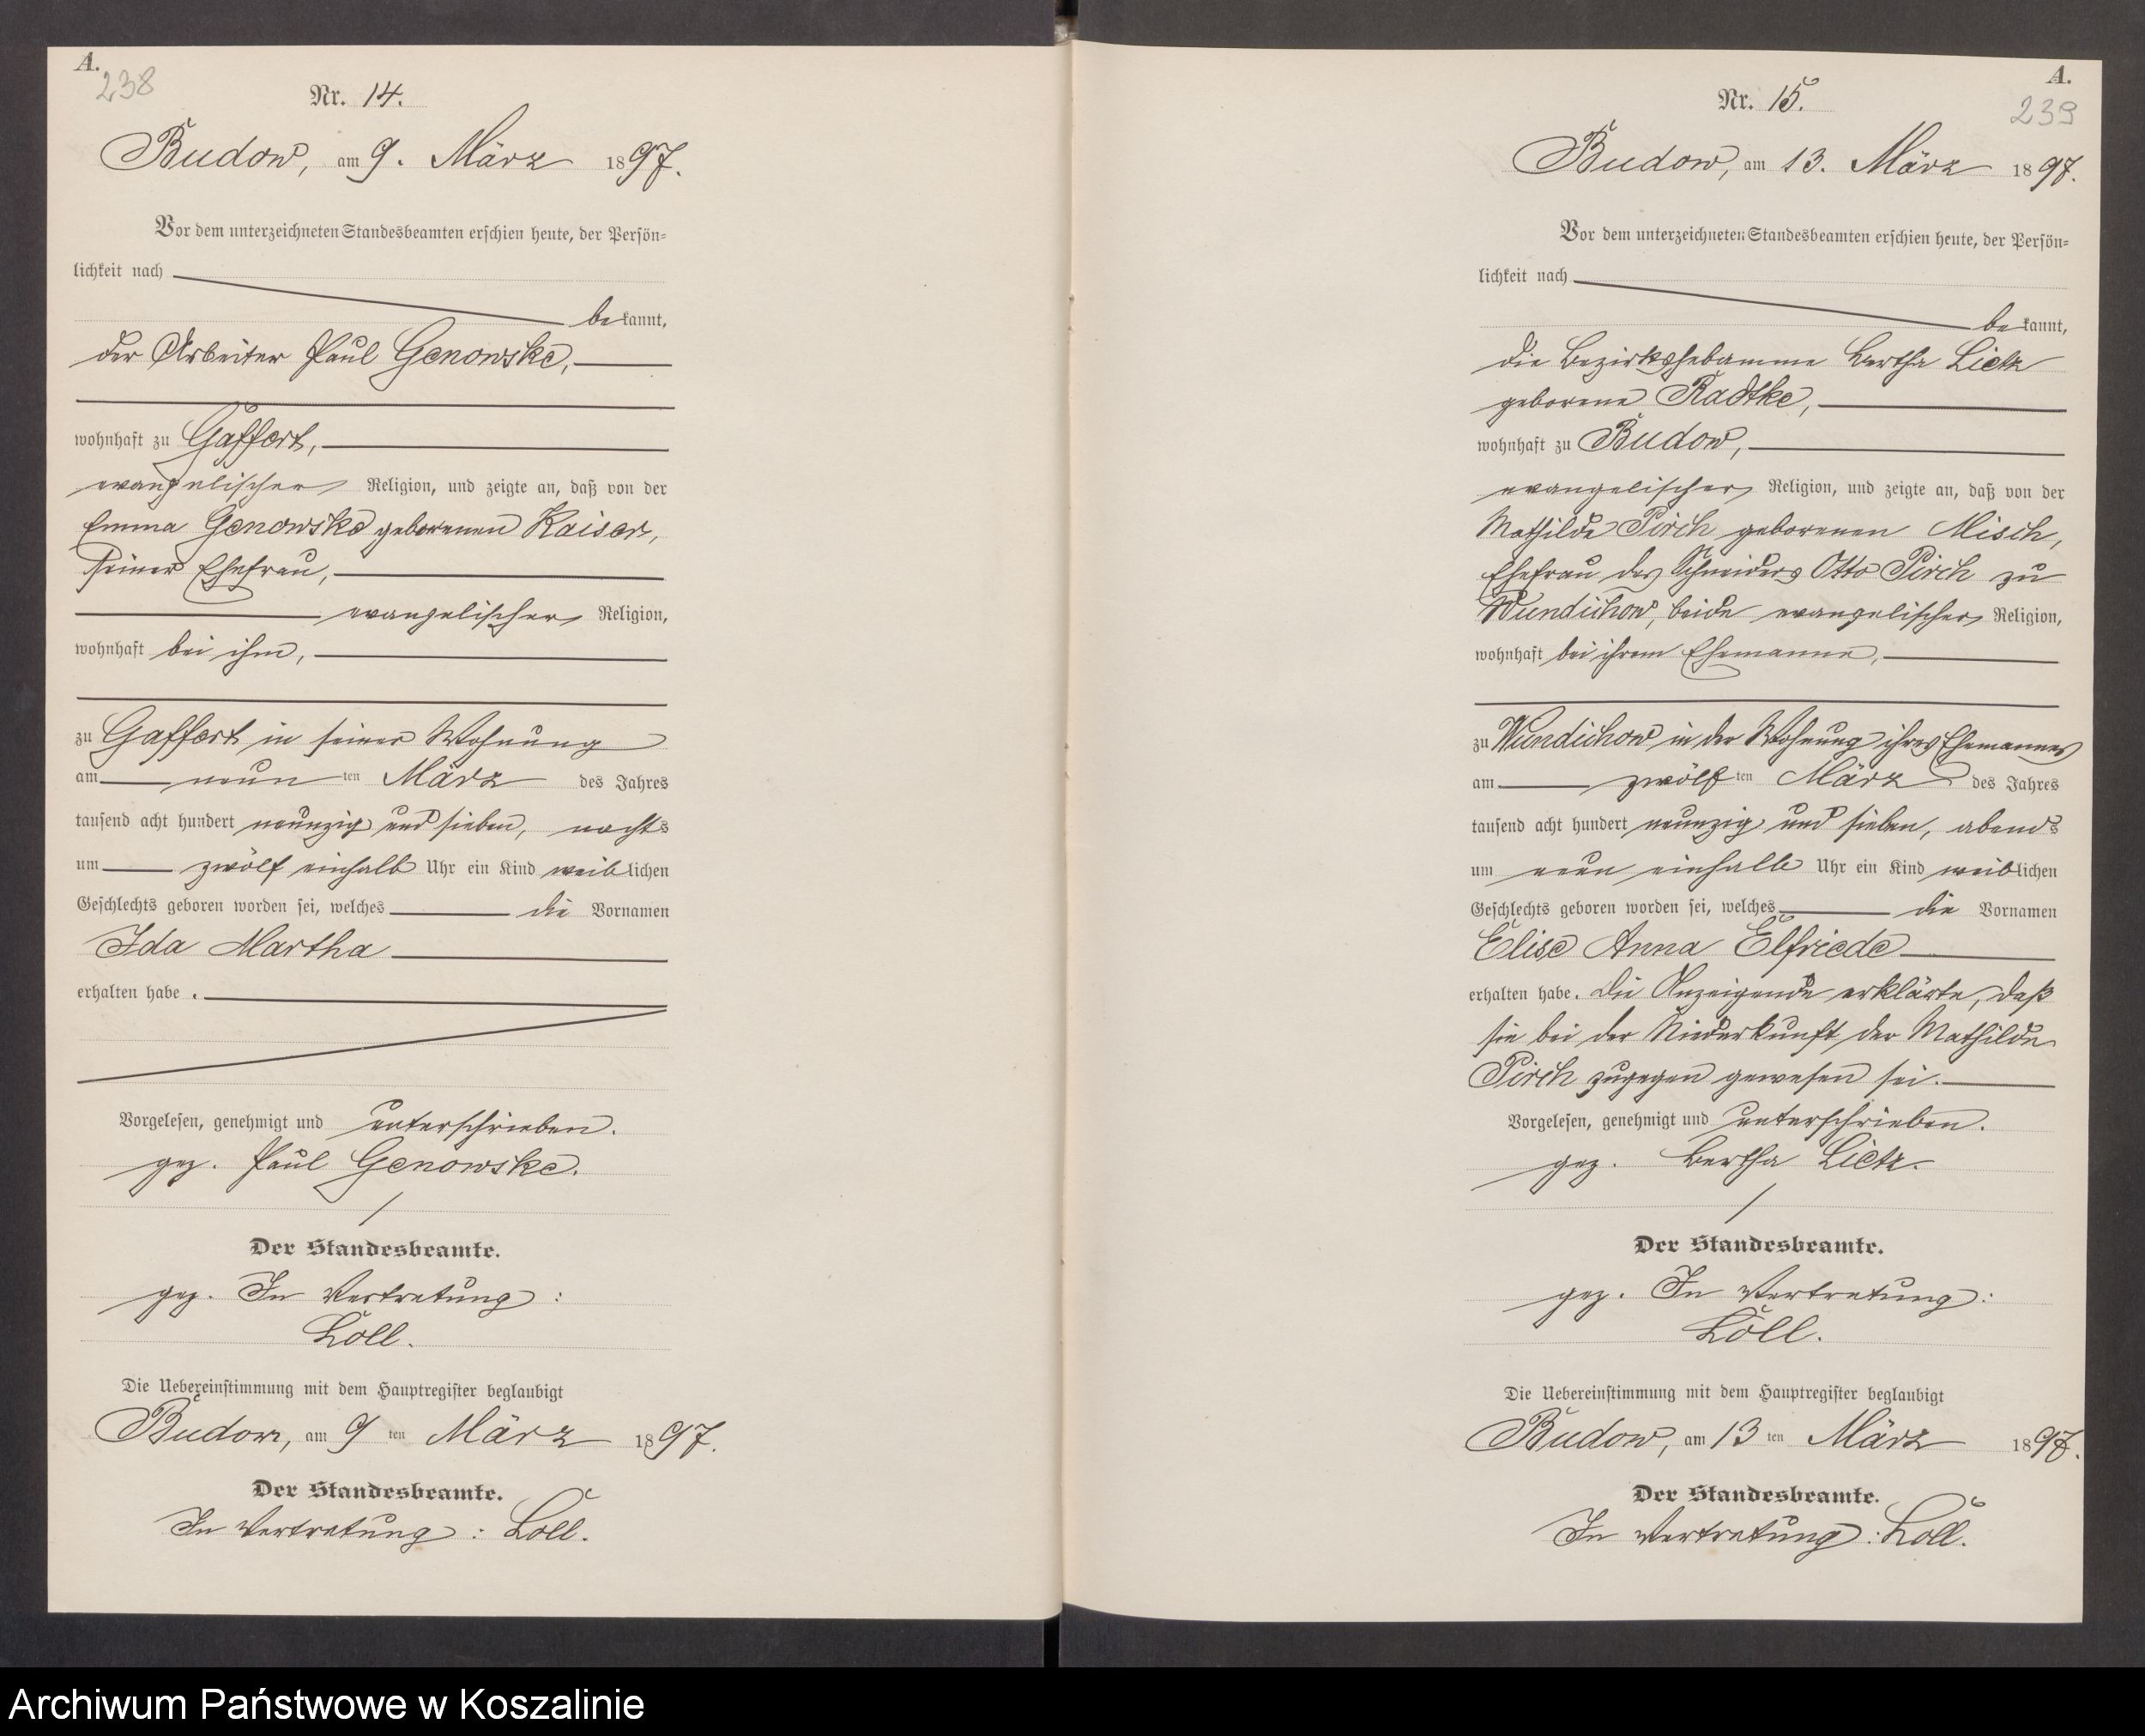 A.
238
Nr. 14.
Budow, am 9. März 1897.
Vor dem unterzeichneten Standesbeamten erschien heute, der Persön=
lichkeit nach
bekannt,
der Arbeiter Paul Genowske,
wohnhaft zu Gaffert,
evangelischer Religion, und zeigte an, daß von der
Emma Genowske geborenen Kaiser,
seiner Ehefrau,
evangelischer Religion,
wohnhaft bei ihm,
zu Gaffert in seiner Wohnung
am neunten März des Jahres
tausend acht hundert neunzig und sieben, nachts
um zwölf einhalb Uhr ein Kind weiblichen
Geschlechts geboren worden sei, welches die Vornamen
Ida Martha
erhalten habe.
Vorgelesen, genehmigt und unterschrieben.
gez. Paul Genowske.
Der Standesbeamte.
gez. In Vertretung:
Löll.
Die Uebereinstimmung mit dem Hauptregister beglaubigt
Budow, am 9ten März 1897.
Der Standesbeamte.
In Vertretung: Löll.
A.
239
Nr. 15.
Budow, am 13. März 1897.
Vor dem unterzeichneten Standesbeamten erschien heute, der Persön=
lichkeit nach
bekannt,
die Bezirkshebamme Bertha Lietz
geborene Radtke,
wohnhaft zu Budow,
evangelischer Religion, und zeigte an, daß von der
Mathilde Pirch geborenen Misch,
Ehefrau des Schneiders Otto Pirch zu
Wundichow, beide evangelischer Religion,
wohnhaft bei ihrem Ehemanne,
zu Wundichow in der Wohnung ihres Ehemannes
am zwölften März des Jahres
tausend acht hundert neunzig und sieben, abends
um neun einhalb Uhr ein Kind weiblichen
Geschlechts geboren worden sei, welches die Vornamen
Elise Anna Elfriede
erhalten habe. Die Anzeigende erklärte, daß
sie bei der Niederkunft der Mathilde
Pirch zugegen gewesen sei.
Vorgelesen, genehmigt und unterschrieben.
gez. Bertha Lietz.
Der Standesbeamte.
gez. In Vertretung:
Löll.
Die Uebereinstimmung mit dem Hauptregister beglaubigt
Budow, am 13ten März 1897.
Der Standesbeamte.
In Vertretung: Löll.
Archiwum Państwowe w Koszalinie